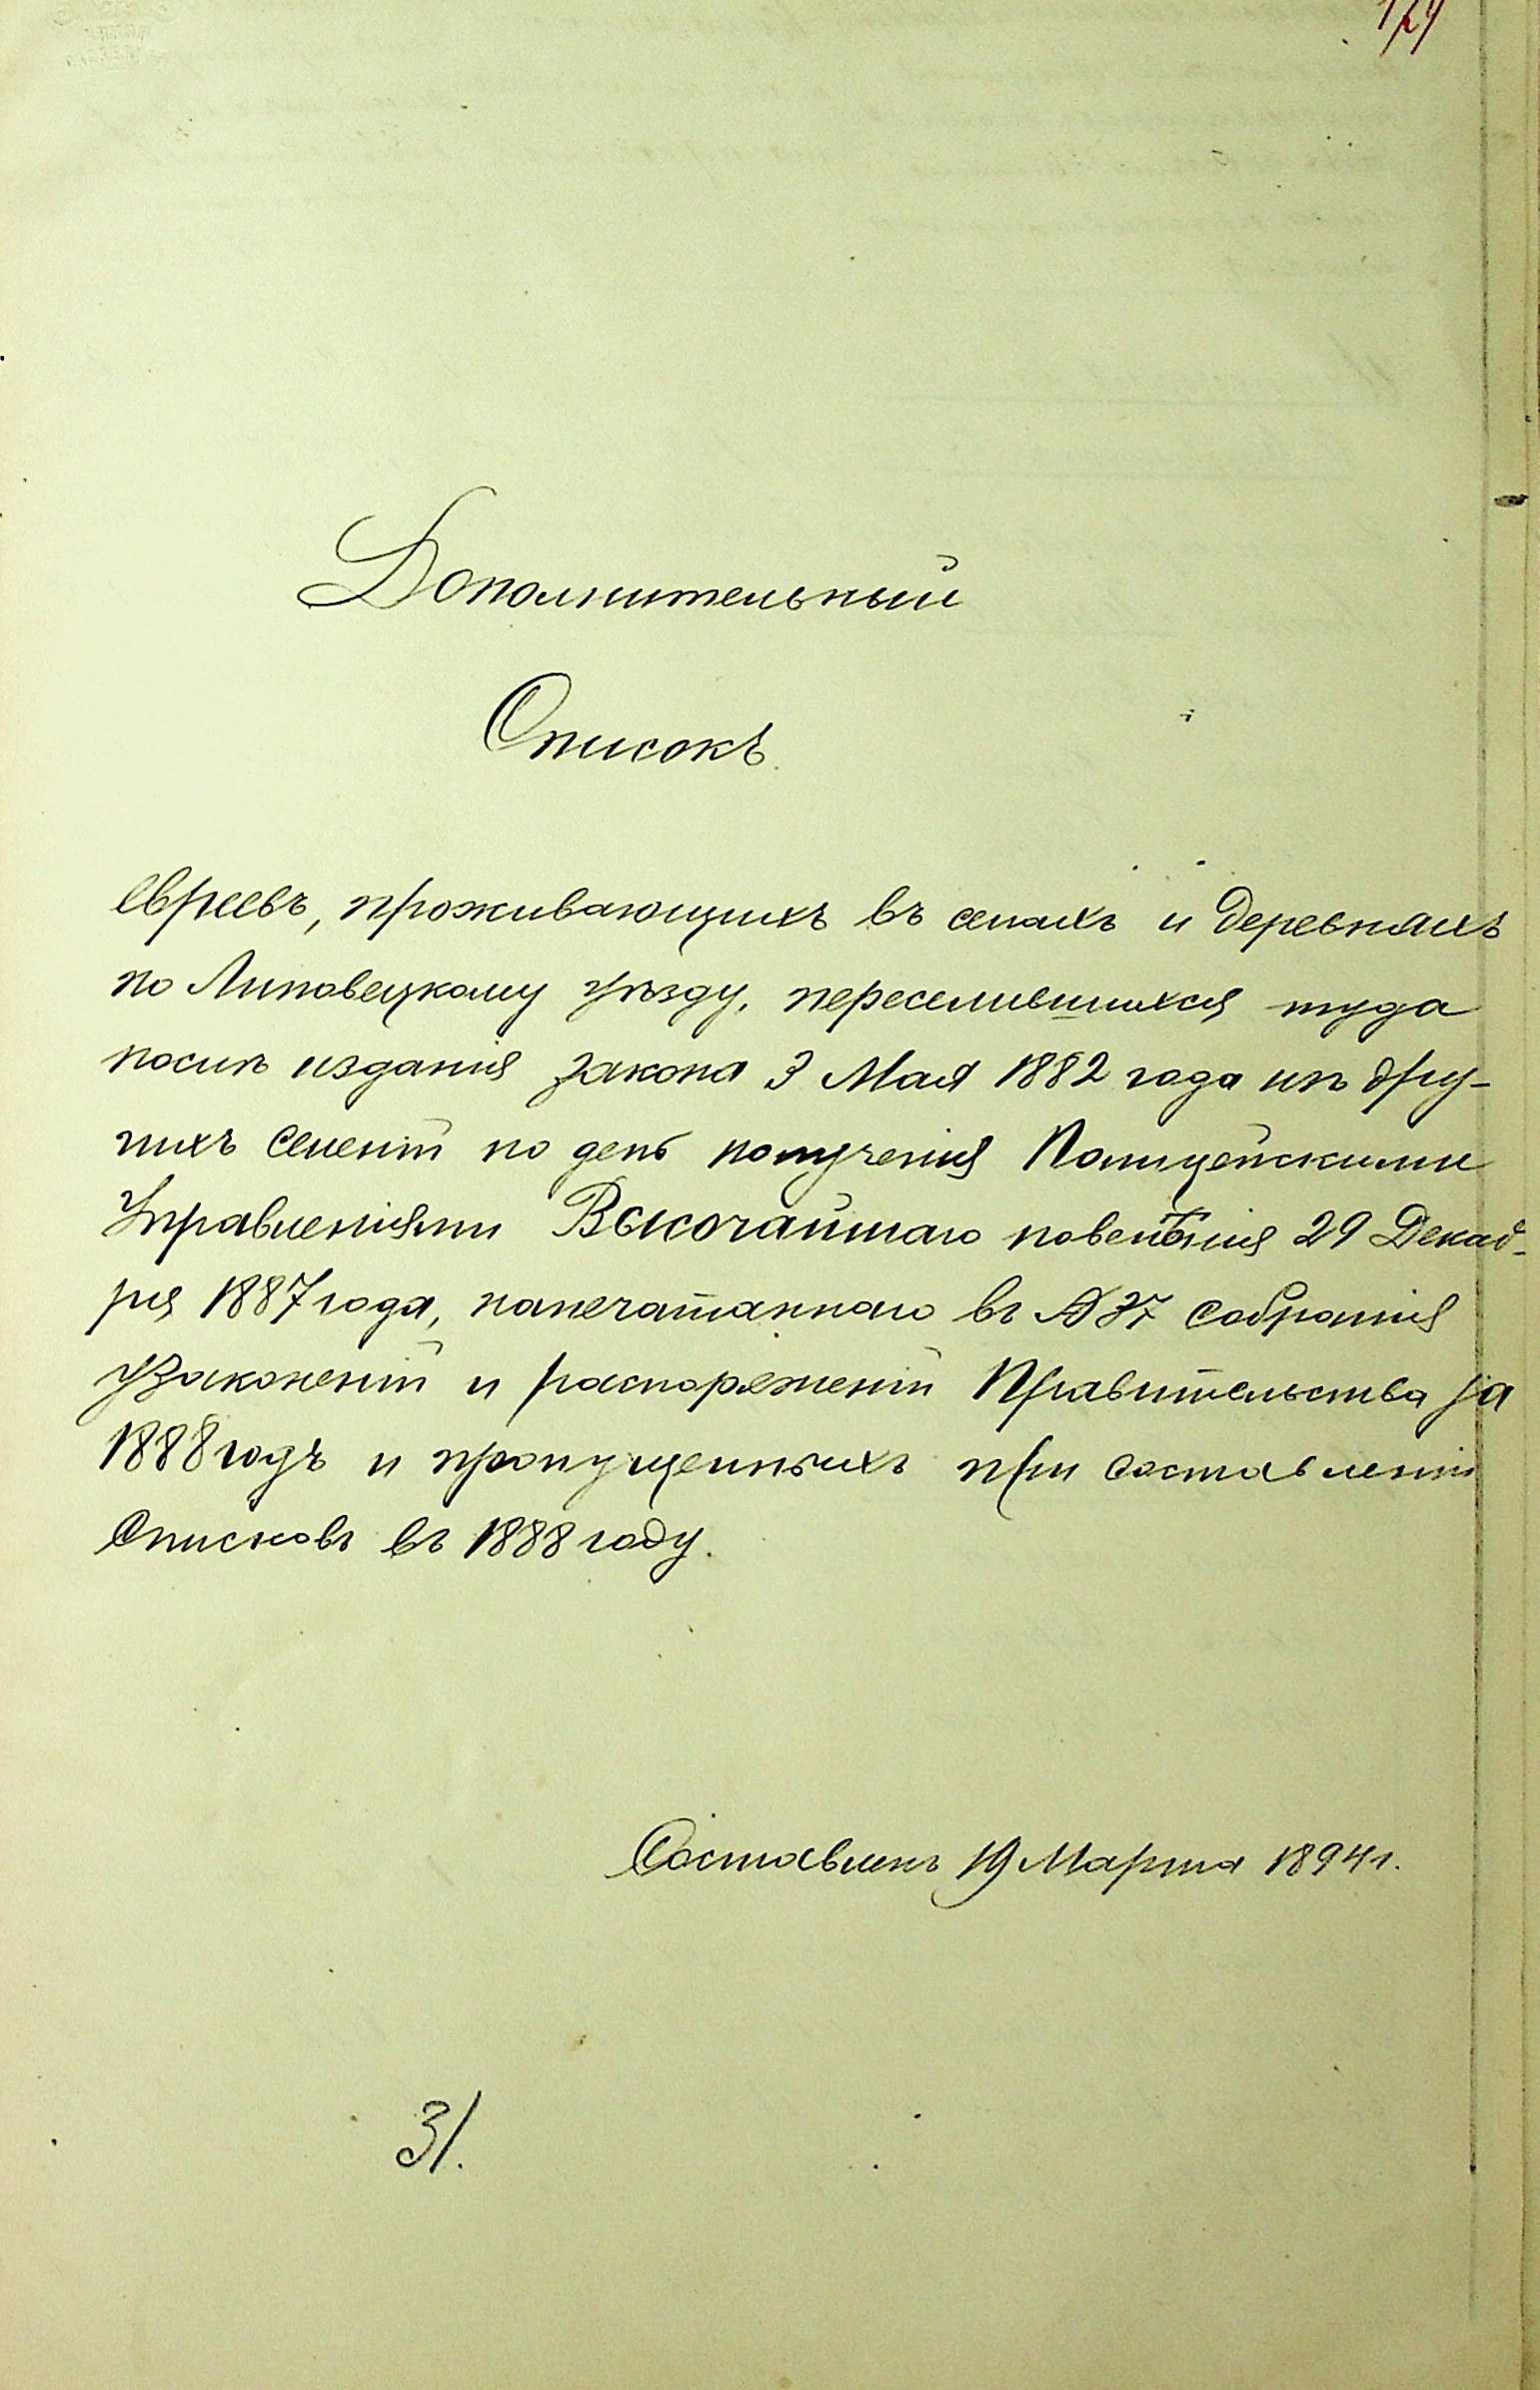 124
Дополнительный
Списокъ.
евреевъ, проживающихъ въ селахъ и деревняхъ
по Липовецкому уѣзду, переселившихся туда
послѣ изданія закона 3 Мая 1882 года изъ дру-
гихъ селеній по день полученія Полицейскими
Управленіями Высочайшаго повелѣнія 29 Декаб-
ря 1887 года, напечатаннаго въ № 37 собранія
узаконеній и распоряженій Правительства за
1888 годъ и пропущенныхъ при составленіи
списковъ въ 1888 году.
Составленъ 19 Марта 1894 г.
31.